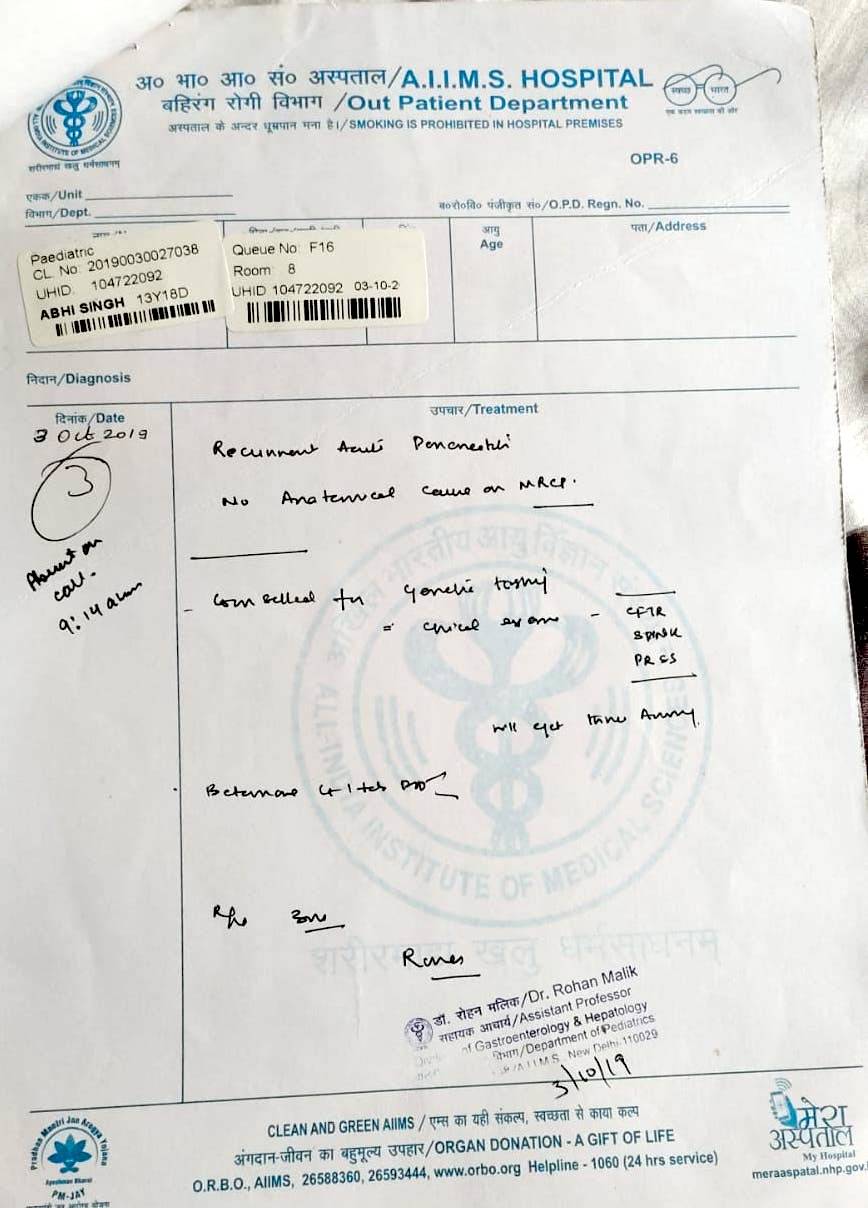 अ० भा० आ० सं० अस्पताल/A.I.I.M.S. HOSPITAL
बहिरंग रोगी विभाग /Out Patient Department
अस्पताल के अन्दर धूम्रपान मना है।/SMOKING IS PROHIBITED IN HOSPITAL PREMISES
स्वच्छ भारत
एक कदम स्वच्छता की ओर
शरीरमाद्यं खलु धर्मसाधनम्
OPR-6
एकक/Unit
विभाग/Dept.
ब०रो०वि० पंजीकृत सं०/O.P.D. Regn. No.
आयु
Age
पता/Address
Paediatric
CL. No: 20190030027038
UHID. 104722092
ABHI SINGH 13Y18D
Queue No: F16
Room: 8
UHID 104722092 03-10-2
निदान/Diagnosis
दिनांक/Date
उपचार/Treatment
3 Oct 2019
3
Absent on
call.
9:14 am
Recurrent Acute
No Anatomical cause on MRCP.
- Counselled for Genetic testing
= exome - CFTR
SPINK
PRSS
will get
1 tab
डॉ. रोहन मलिक/Dr. Rohan Malik
सहायक आचार्य/Assistant Professor
of Gastroenterology & Hepatology
विभाग/Department of Pediatrics
A.I.I.M.S., New Delhi-110029
3/10/19
ALL-INDIA INSTITUTE OF MEDICAL SCIENCES
शरीरमाद्यं खलु धर्मसाधनम्
CLEAN AND GREEN AIIMS / एम्स का यही संकल्प, स्वच्छता से काया कल्प
अंगदान-जीवन का बहुमूल्य उपहार/ORGAN DONATION - A GIFT OF LIFE
O.R.B.O., AIIMS, 26588360, 26593444, www.orbo.org Helpline - 1060 (24 hrs service)
Pradhan Mantri Jan Arogya Yojana
Ayushman Bharat
PM-JAY
मेरा
अस्पताल
My Hospital
meraaspatal.nhp.gov.